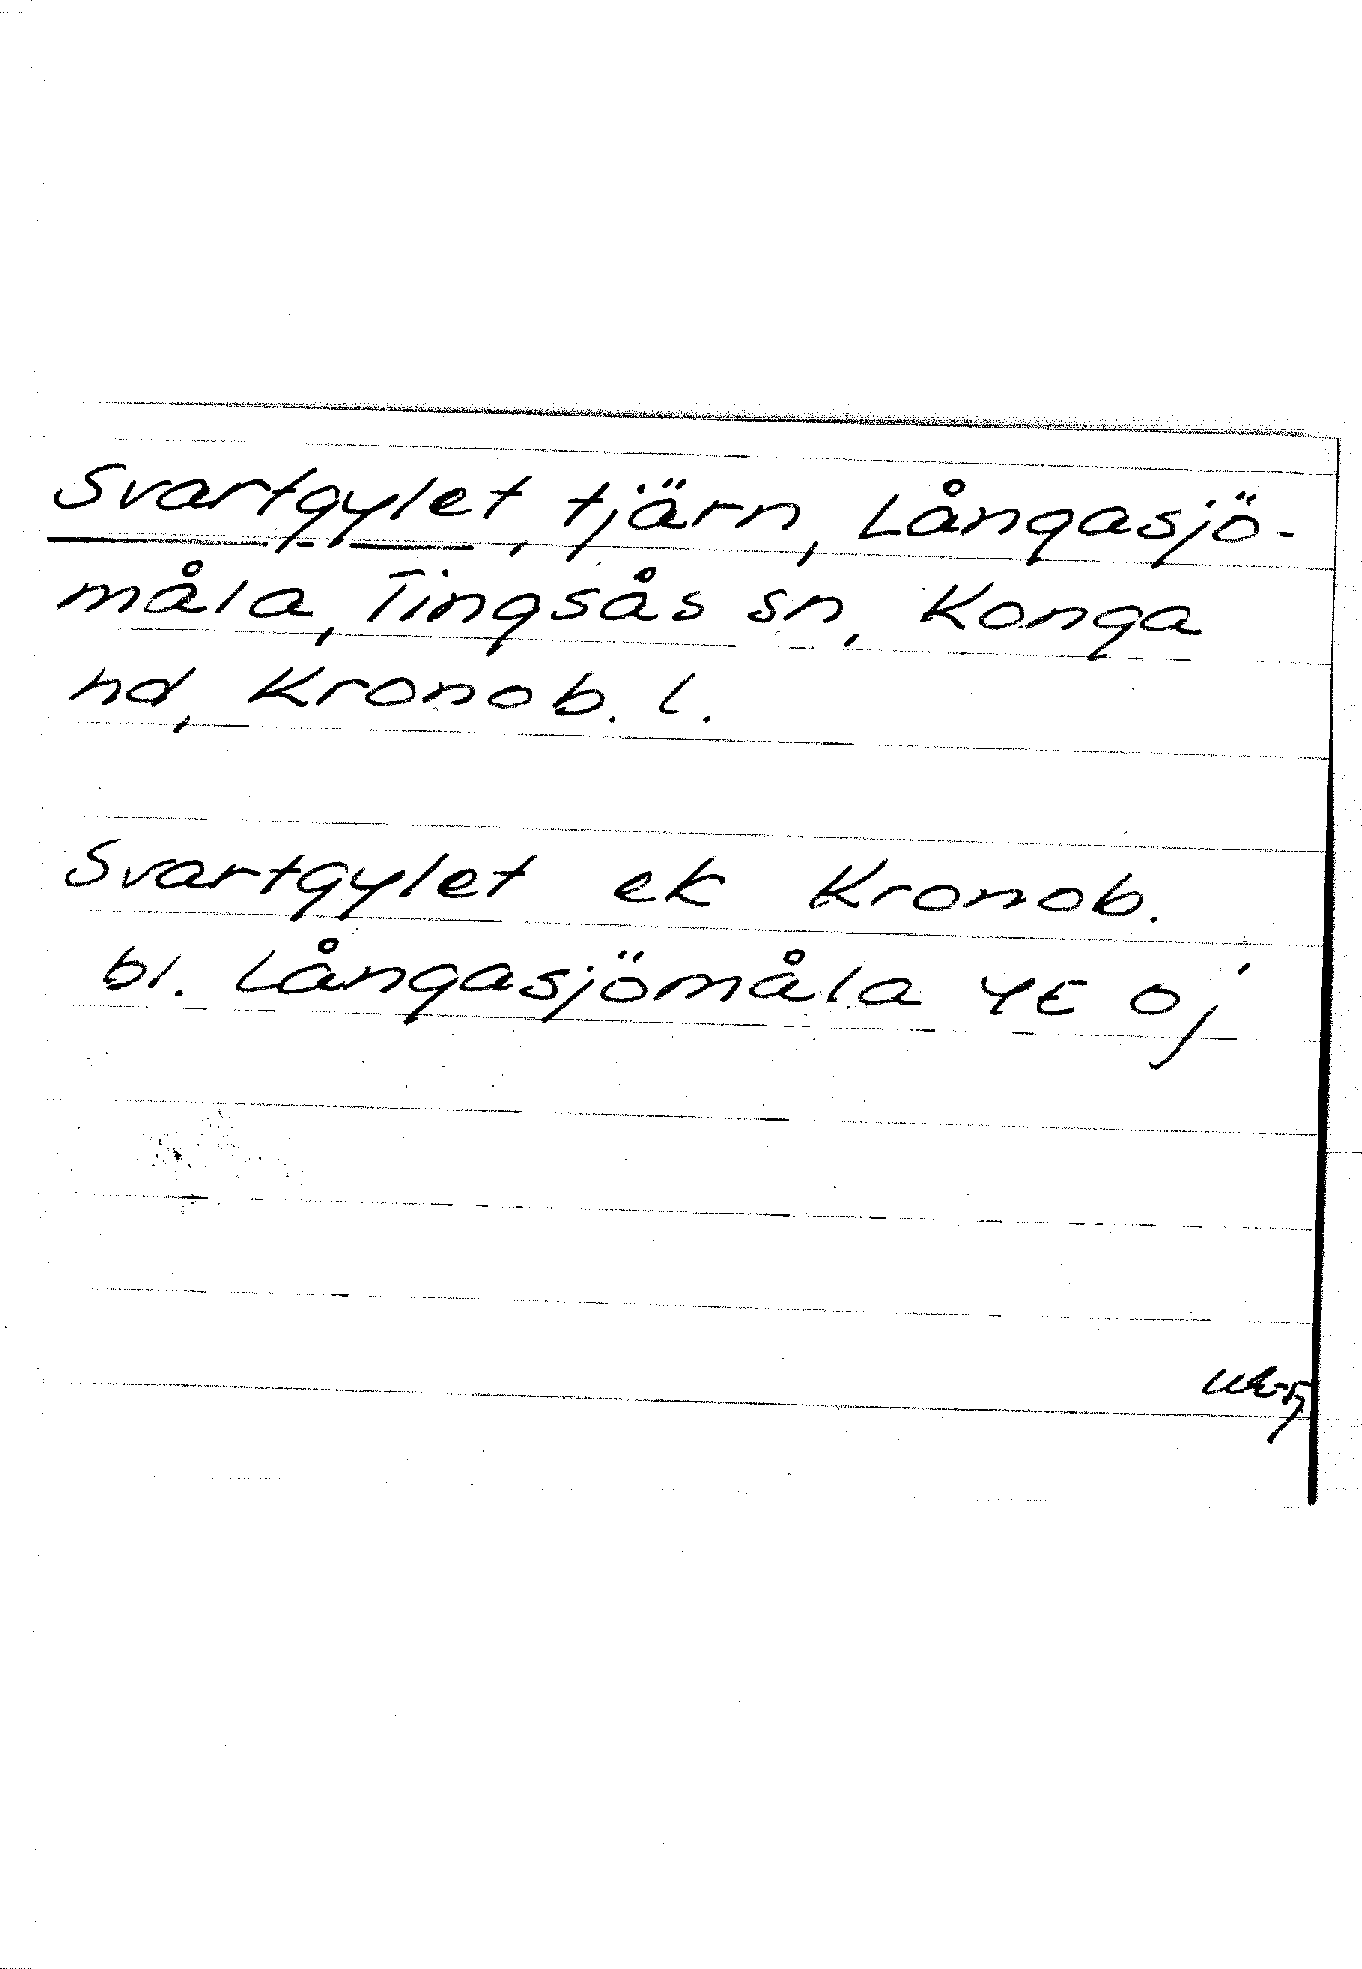 Svartgylet, tjärn, Långasjö-
måla, Tingsås sn, Konga
hd, Kronob. l.
Svartgylet ek Kronob.
bl. Långasjömåla 4E öj